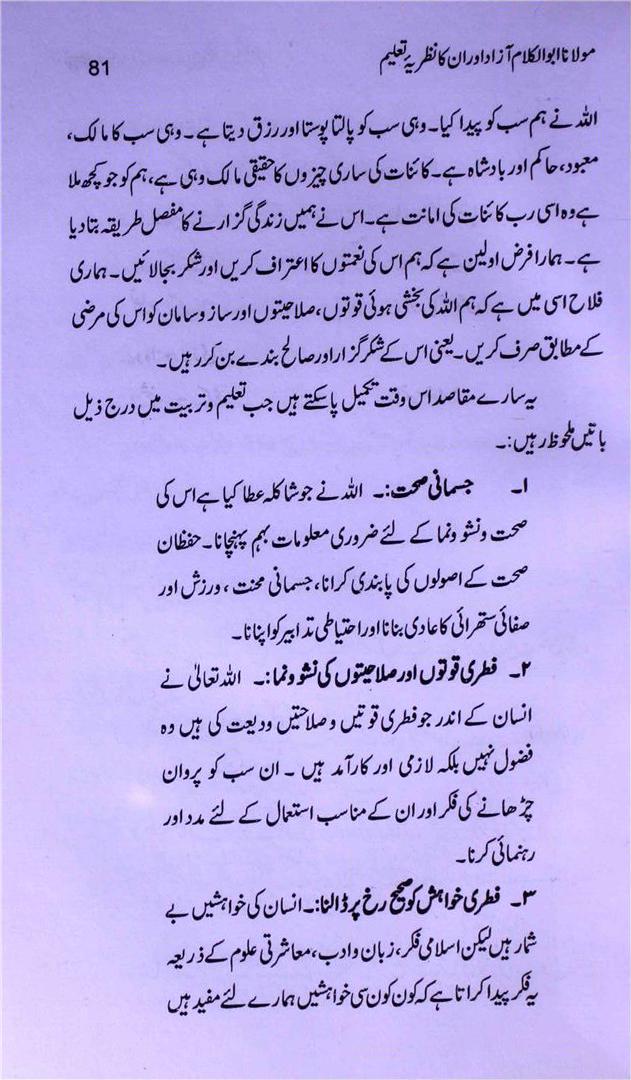 مولانا ابوالکلام آزاد اور ان کا نظریۂ تعلیم
81
اللہ نے ہم سب کو پیدا کیا۔ وہی سب کو پالتا پوستا اور رزق دیتا ہے۔ وہی سب کا مالک،
معبود، حاکم اور بادشاہ ہے۔ کائنات کی ساری چیزوں کا حقیقی مالک وہی ہے، ہم کو جو کچھ ملا
ہے وہ اسی رب کائنات کی امانت ہے۔ اس نے ہمیں زندگی گزارنے کا مفصل طریقہ بتادیا
ہے۔ ہمارا فرض اولین ہے کہ ہم اس کی نعمتوں کا اعتراف کریں اور شکر بجالائیں۔ ہماری
فلاح اسی میں ہے کہ ہم اللہ کی بخشی ہوئی قوتوں، صلاحیتوں اور ساز و سامان کو اس کی مرضی
کے مطابق صرف کریں۔ یعنی اس کے شکر گزار اور صالح بندے بن کر رہیں۔
یہ سارے مقاصد اس وقت تکمیل پاسکتے ہیں جب تعلیم و تربیت میں درج ذیل
باتیں ملحوظ رہیں:۔
۱۔ جسمانی صحت:۔ اللہ نے جو شاکلہ عطا کیا ہے اس کی
صحت و نشوونما کے لئے ضروری معلومات بہم پہنچانا۔ حفظان
صحت کے اصولوں کی پابندی کرانا، جسمانی محنت، ورزش اور
صفائی ستھرائی کا عادی بنانا اور احتیاطی تدابیر کو اپنانا۔
۲۔ فطری قوتوں اور صلاحیتوں کی نشوونما:۔ اللہ تعالیٰ نے
انسان کے اندر جو فطری قوتیں و صلاحتیں ودیعت کی ہیں وہ
فضول نہیں بلکہ لازمی اور کارآمد ہیں ۔ ان سب کو پروان
چڑھانے کی فکر اور ان کے مناسب استعمال کے لئے مدد اور
رہنمائی کرنا۔
۳۔ فطری خواہش کو صحیح رخ پر ڈالنا:۔ انسان کی خواہشیں بے
شمار ہیں لیکن اسلامی فکر، زبان و ادب، معاشرتی علوم کے ذریعہ
یہ فکر پیدا کراتا ہے کہ کون کون سی خواہشیں ہمارے لئے مفید ہیں